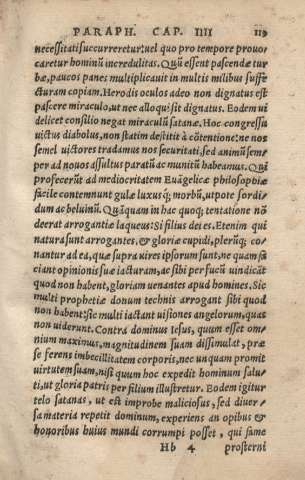 PARAPH. CAP. IIII 119
necessitati succurreretur: uel quo pro tempore prouo
caretur hominũ incredulitas. Quũ essent pascendæ tur
bæ, paucos panes multiplicauit in multis milibus suffe
cturam copiam. Herodis oculos adeo non dignatus est
pascere miraculo, ut nec alloqui sit dignatus. Eodem ui
delicet consilio negat miraculũ satanæ. Hoc congressu
uictus diabolus, non statim destitit à cõtentione: ne nos
semel uictores tradamus nos securitati, sed animũ sem
per ad nouos assultus paratũ ac munitũ habeamus. Qui
profecerũt ad mediocritatem Euãgelicæ philosophiæ
facile contemnunt gulæ luxusq́; morbũ, utpote sordi
dum ac beluinũ. Quãquam in hac quoq; tentatione nõ
deerat arrogantiæ laqueus: Si filius dei es. Etenim qui
natura sunt arrogantes, & gloriæ cupidi, plerũq; co
nantur ad ea, quæ supra uires ipsorum sunt, ne quam fa
ciant opinionis suæ iacturam, ac sibi per fucũ uindicãt
quod non habent, gloriam uenantes apud homines. Sic
multi prophetiæ donum technis arrogant sibi quod
non habent: sic multi iactant uisiones angelorum, quas
non uiderunt. Contra dominus Iesus, quum esset om
nium maximus, magnitudinem suam dissimulat, præ
se ferens imbecillitatem corporis, nec unquam promit
uirtutem suam, nisi quum hoc expedit hominum salu
ti, ut gloria patris per filium illustretur. Eodem igitur
telo satanas, ut est improbe maliciosus, sed diuer
sa materia repetit dominum, experiens an opibus &
honoribus huius mundi corrumpi posset, qui fame
Hh 4 prosterni